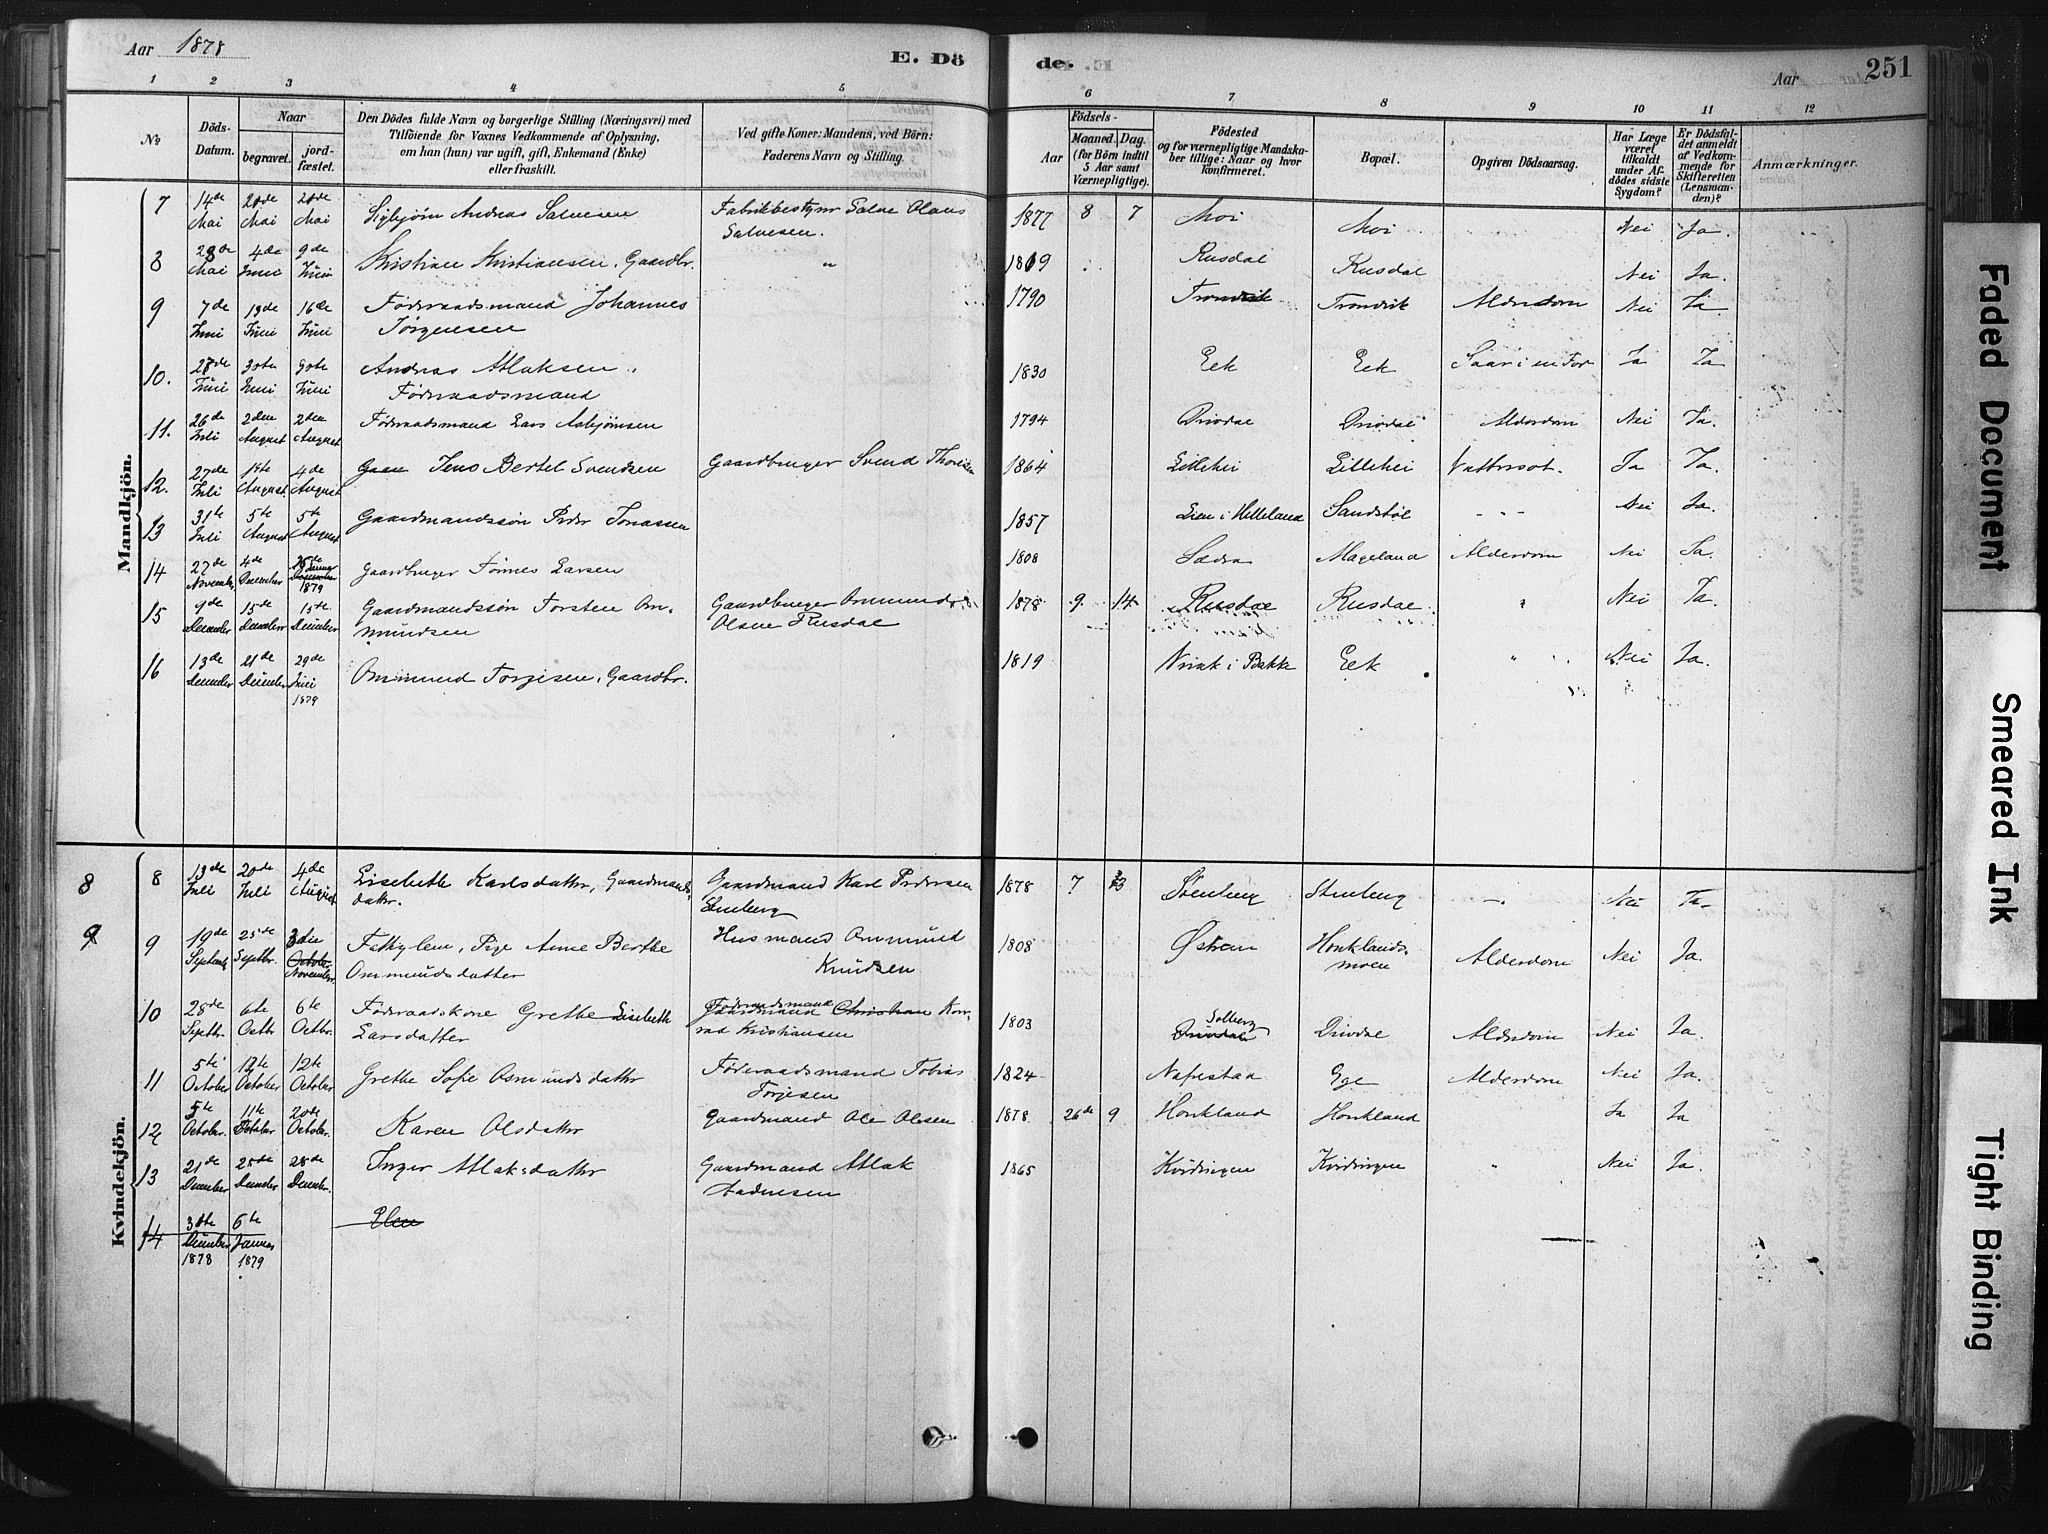 Aar 1878
E. Dö
de.
Aar
251
1 2 3 4 5 6 7 8 9 10 11 12
No
Döds-Datum.
Naar
begravet.
jord-fæstet.
Den Dödes fulde Navn og borgerlige Stilling (Næringsvei) med
Tilföiende for Voxnes Vedkommende af Oplysning,
om han (hun) var ugift, gift, Enkemand (Enke)
eller fraskilt.
Ved gifte Koner: Mandens, ved Börn:
Faderens Navn og Stilling.
Födsels-
Aar
Maaned. Dag.
(for Börn indtil
5 Aar samt
Værnepligtige).
Födested
og for værnepligtige Mandska-
ber tillige: Naar og hvor
konfirmeret.
Bopæl.
Opgiven Dödsaarsag.
Har Læge
været
tilkaldt
under Af-
dödes sidste
Sygdom?
Er Dödsfal-
det anmeldt
af Vedkom-
mende for
Skifteretten
(Lensman-
den)?
Anmærkninger.
Mandkjön.
7 14de Mai 20de Mai 20de Mai Sigbjørn Andreas Salvesen Fabrikbestyrer Salve Olaus Salvesen. 1877 8 7 Moi Moi Nei Ja.
8 28de Mai 4de Juni 9de Juni Kristian Kristiansen, Gaardbr. " 1819 Rusdal Rusdal Nei Ja.
9 7de Juni 13de Juni 16de Juni Føderaadsmand Johannes Jørgensen 1790 Tronvik Tronvik Alderdom Nei Ja
10. 27de Juni 30te Juni 30te Juni Andreas Atlaksen, Føderaadsmand 1830 Eek Eek Saar i en Fod Ja Ja
11. 26de Juli 2den August 2den August Føderaadsmand Lars Asbjørnsen 1794 Drivdal Drivdal Alderdom Nei Ja.
12. 27de Juli 1ste August 4de August Gaar Jens Bertel Svendsen Gaardbruger Svend Thorsen 1864 Lillehei Lillehei Vattersot. Ja Ja.
13 31te Juli 5te August 5te August Gaardmandssøn Peder Jonassen 1857 Lien i Helleland Sandstøl - " - Nei Ja.
14 27de November 4de December Januar 1879 Gaardbruger Tønnes Larsen 1808 Sædra Mageland Alderdom Nei Ja.
15 9de December 15de December 15de December Gaardmandssøn Torsten Ommundsen Gaardbruger Ommund Olsen Rusdal 1878 9. 14 Rusdal Rusdal. " Nei Ja.
16 13de December 21de December 29de Juni 1879 Ommund Torgersen, Gaardbr. 1819 i Bakke Eek " Nei Ja.
Kvindekjön.
8 8 13de Juli 20de Juli 4de August Lisebeth Karlsdatter, Gaardmandsdatter. Gaardmand Karl Pedersen Stenberg 1878 7 Stenberg Stenberg - Nei Ja-
9 9 19de Septemb. 25de Septbr. 3die November Fattiglem, Pige Anne Berthe Ommundsdatter Husmand Ommund Knudsen 1808 Østrem Honklandsmoen Alderdom Nei Ja.
10 28de Septbr. 6te Octbr 6te Octbr. Føderaadskone Grethe Lisebeth Larsdatter Føderaadsmand Christian Konrad Kristiansen 1803 Solberg Drivdal Alderdom Nei Ja.
11 5te October 12te October 12te October Grethe Sofie Osmundsdatter Føderaadsmand Tobias Torjesen 1824 Nafrestad Ege Alderdom Nei Ja.
12 5te October. 11te October 20de October. Karen Olsdatter Gaardmand Ole Olesen 1878 26de 9 Honkland Honkland Ja Ja
13 21de December 28de December 28de Decembr. Inger Atlaksdatter Gaardmand Atlak Aadnesen 1865 Kvidringen Kvidringen " Nei Ja.
14 December 1878 6te Januar 1879 Elen
Faded Document
Smeared Ink
Tight Binding